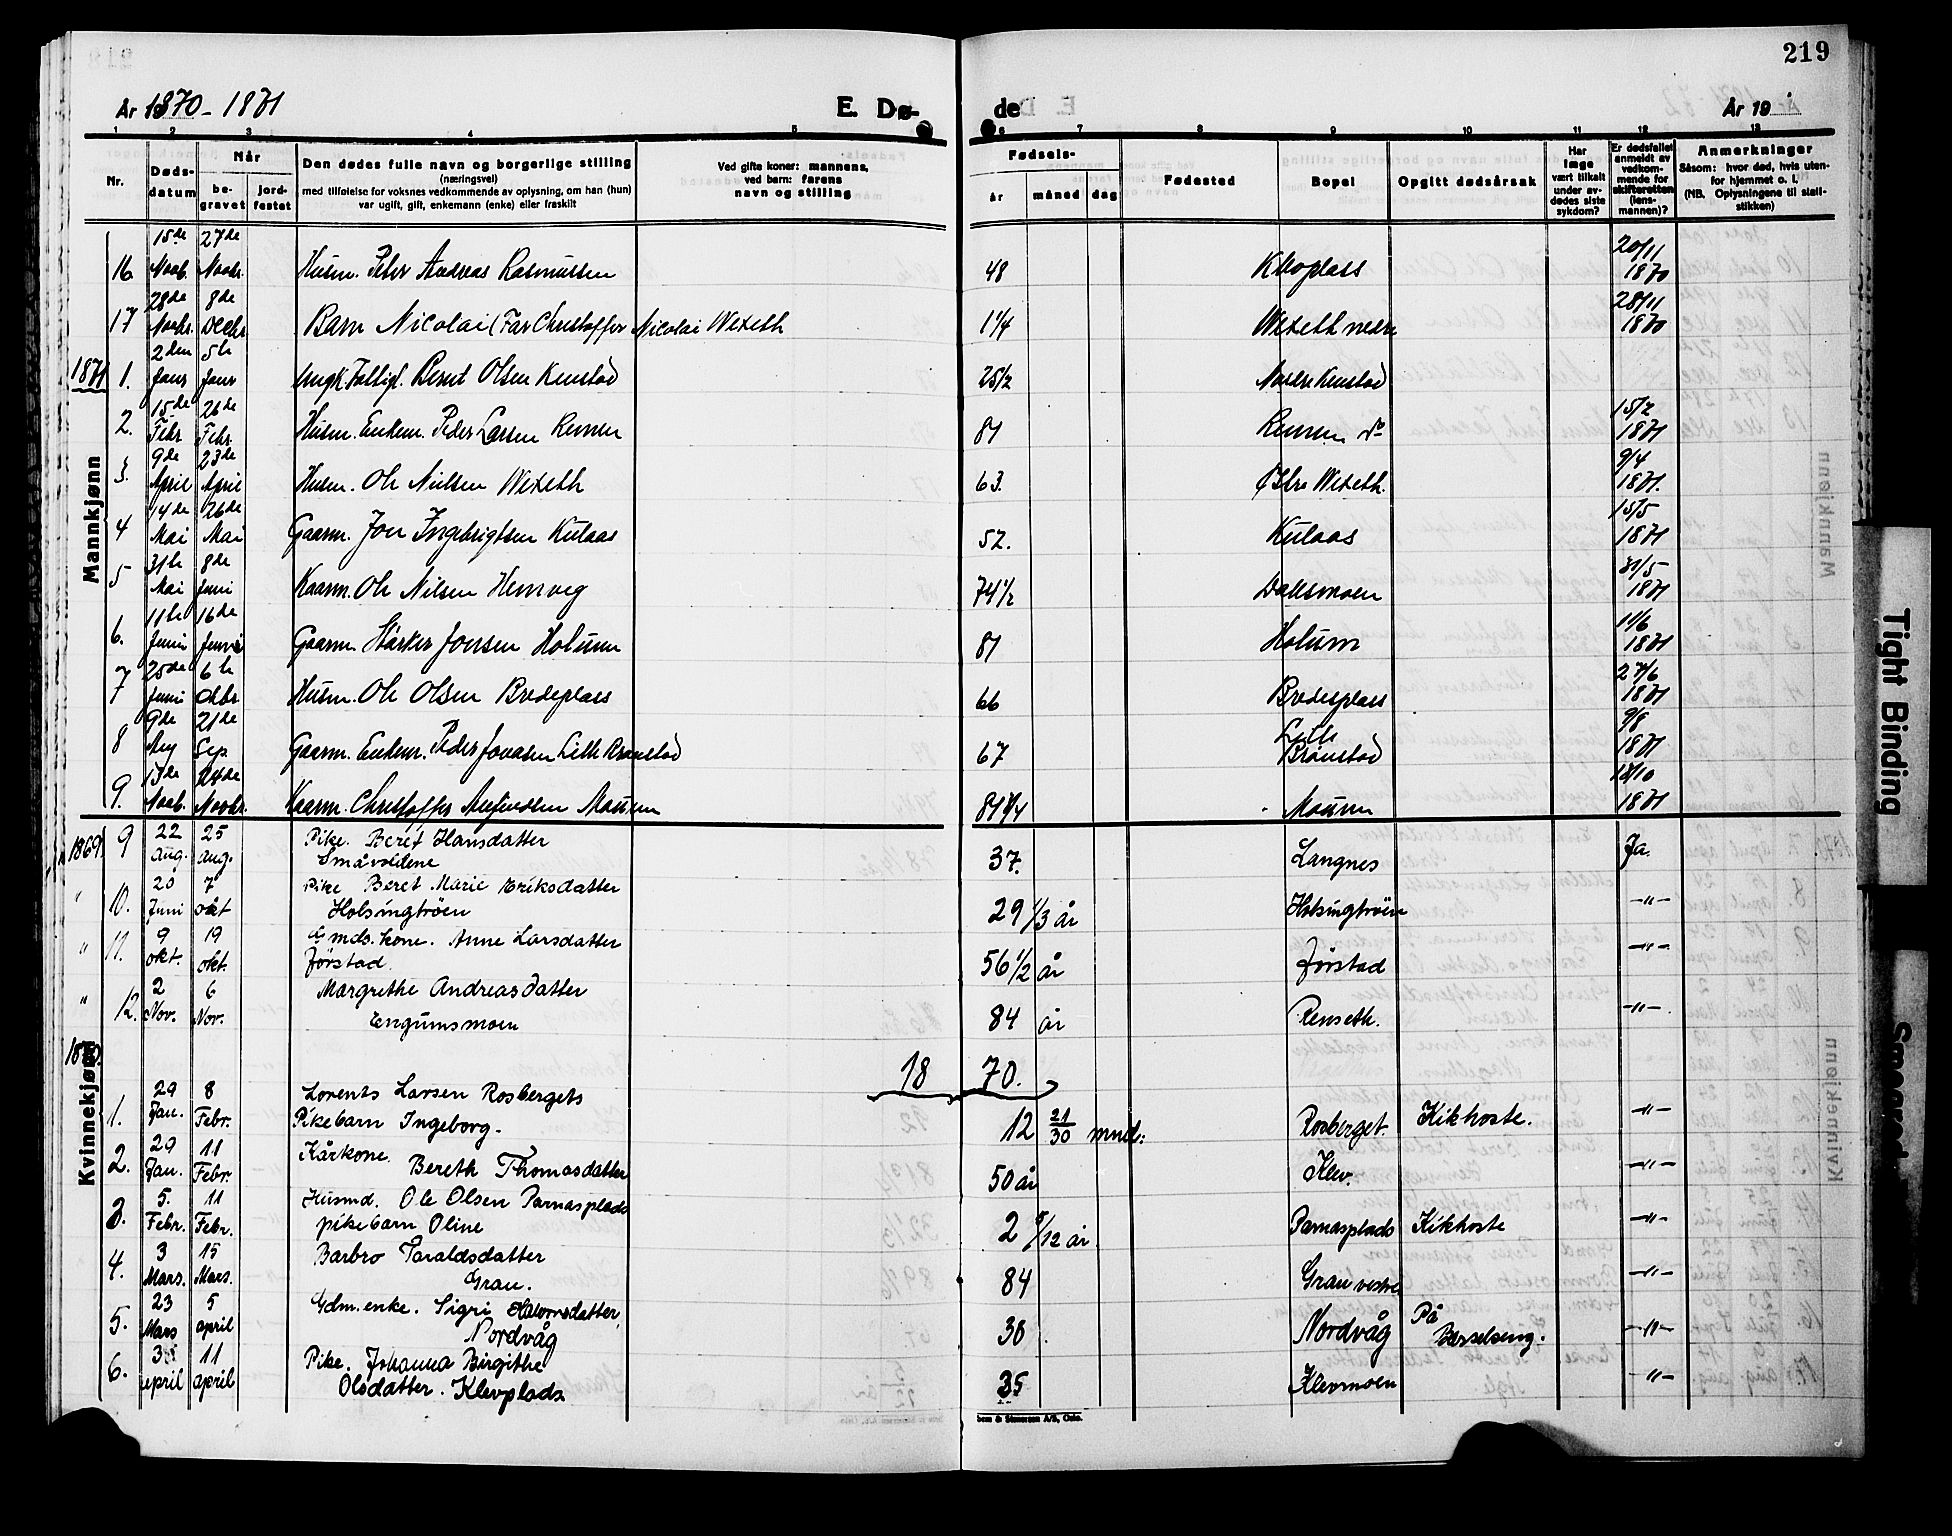 219
År 1870-1871
E. Døde
År 19
1 2 3 4 5 6 7 8 9 10 11 12 13
Nr.
Dødsdatum
Når
begravet
jordfestet
Den dødes fulle navn og borgerlige stilling
(næringsvei)
med tilføielse for voksnes vedkommende av oplysning, om han (hun)
var ugift, gift, enkemann (enke) eller fraskilt
Ved gifte koner: mannens,
ved barn: farens
navn og stilling
Fødsels-
år måned dag
Fødested
Bopel
Opgitt dødsårsak
Har læge vært tilkalt under avdødes siste sykdom?
Er dødsfallet anmeldt av vedkommende for skifteretten (lensmannen)?
Anmerkninger
Såsom: hvor død, hvis utenfor hjemmet o. l.
(NB. Oplysningene til statistikken)
Mannkjønn
16 15de Novb. 27de Novbr. Husm. Peder Andreas Rasmussen 48 20/11 1870
17 28de Novbr. 8de Decbr. Barn Nicolai (Far Christoffer Nicolai Wexeth 1 1/4 Wexeth nedre 28/11 1870
1871 1. 2den Janr 5te Janr Ungk. Fattigl. Bernt Olsen Kenstad 25 1/2 Nordre Kenstad
2. 15de Febr 26de Febr. Husm. Enkem. Peder Larsen Remen 81 15/2 1871
3. 9de April 23de April Husm. Ole Nielsen Wexeth 63. Østre Wexeth. 9/4 1871.
4 14de Mai 26de Mai Gaarm. Jon Ingebrigtsen Kulaas 52. Kulaas 15/5 1871
5 31te Mai 8de Juni Kaarm. Ole Nilsen Hemveg 74 1/2 Dallsmoen 31/5 1871
6. 11te Juni 16de Juni Gaarm. Stärker Jonsen Holum 81 Holum 11/6 1871
7 25de Juni 6te Oktbr Husm. Ole Olsen Bredeplass 66 Bredesplass 27/6 1871
8 9de Aug 21de Sep Gaarm. Enkem. Peder Jonasen Lille Brønstad 67 Lille Brønstad 9/8 1871
9. 13de Novb. 24de Novbr. Kaarm. Christoffer Arnfindsen Maurn 81 3/4 Maurn 1871
Kvinnekjønn
1869. 9 22 aug. 25 aug. Pike. Beret Hansdatter
Småvoldene 37. Langnes Ja.
" 10. 20 Juni 7 okt Pike Beret Marie Eriksdatter
Holsingtrøen 29 1/3 år Holsingtrøen -"-
" 11. 9 okt. 19 okt. Gmds. kone. Anne Larsdatter
Jørstad. 56 1/2 år Jørstad -"-
" 12. 2 Nov. 6 Nov. Margrethe Andreasdatter
Engumsmoen 84 år Renseth. -"-
1870. 1870.
1. 29 Jan. 8 Febr. Lorents Larsen Rosbergets
Pikebarn Ingeborg. 12 21/30 mnd: Rosberget. Kikhoste. -"-
2. 29 Jan. 11 Febr. Kårkone. Bereth Thomasdatter 50 år Klev. -"-
3. 5. Febr. 11 Febr. Husmd. Ole Olsen Parnasplads
pikebarn Oline 2 5/12 år Parnasplads Kikhoste -"-
4. 3 Mars. 15 Mars. Barbro Taraldsdatter
Gran. 84 Gran vestre -"-
5. 23 Mars 5 april Gdm. enke. Sigri Halvorsdatter
Nordvåg 36 Nordvåg På Barselseng. -"-
6. april 11 april Pike. Johanna Birgithe
Olsdatter. Klevplads 35 Klevmoen -"-
Tight Binding
Smeared